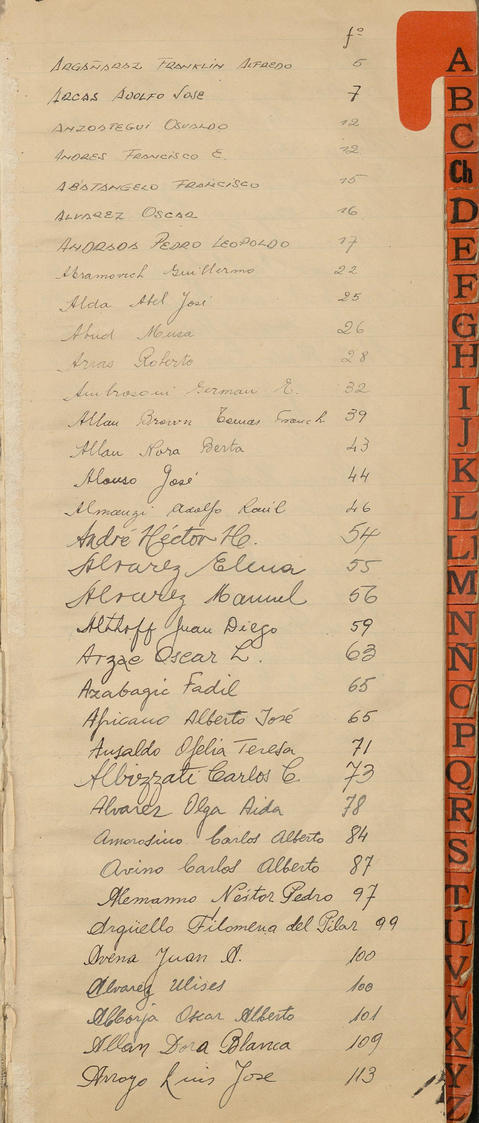 fº
ARGAÑARAZ FRANKLIN ALFREDO 5
ARCAS ADOLFO JOSE 7
ANZOATEGUI OSVALDO 12
ANDRES FRANCISCO E. 12
ABATANGELO FRANCISCO 15
ALVAREZ OSCAR 16
PEDRO LEOPOLDO 17
Abramovich Guillermo 22
Alda Abel José 25
Abud Musa 26
Arias Roberto 28
Ambrosoni German E. 32
Allan Brown Tomas 39
Allan Nora Berta 43
Alonso José 44
Almanzi Adolfo Raúl 46
André Héctor H. 54
Alvarez Elena 55
Alvarez Manuel 56
Althoff Juan Diego 59
Arzae Oscar L. 63
Azabagic Fadil 65
Africano Alberto José 65
Ansaldo Ofelia Teresa 71
Albizzati Carlos C. 73
Alvarez Olga Aida 78
Amorosino Carlos Alberto 84
Avino Carlos Alberto 87
Alemanno Néstor Pedro 97
Argüello Filomena del Pilar 99
Avena Juan A. 100
Alvarez Ulises 100
Oscar Alberto 101
Allan Dora Blanca 109
Arroyo Luis Jose 113
A
B
C
Ch
D
E
F
G
H
I
J
K
L
LL
M
N
Ñ
O
P
Q
R
S
T
U
V
W
X
Y
Z